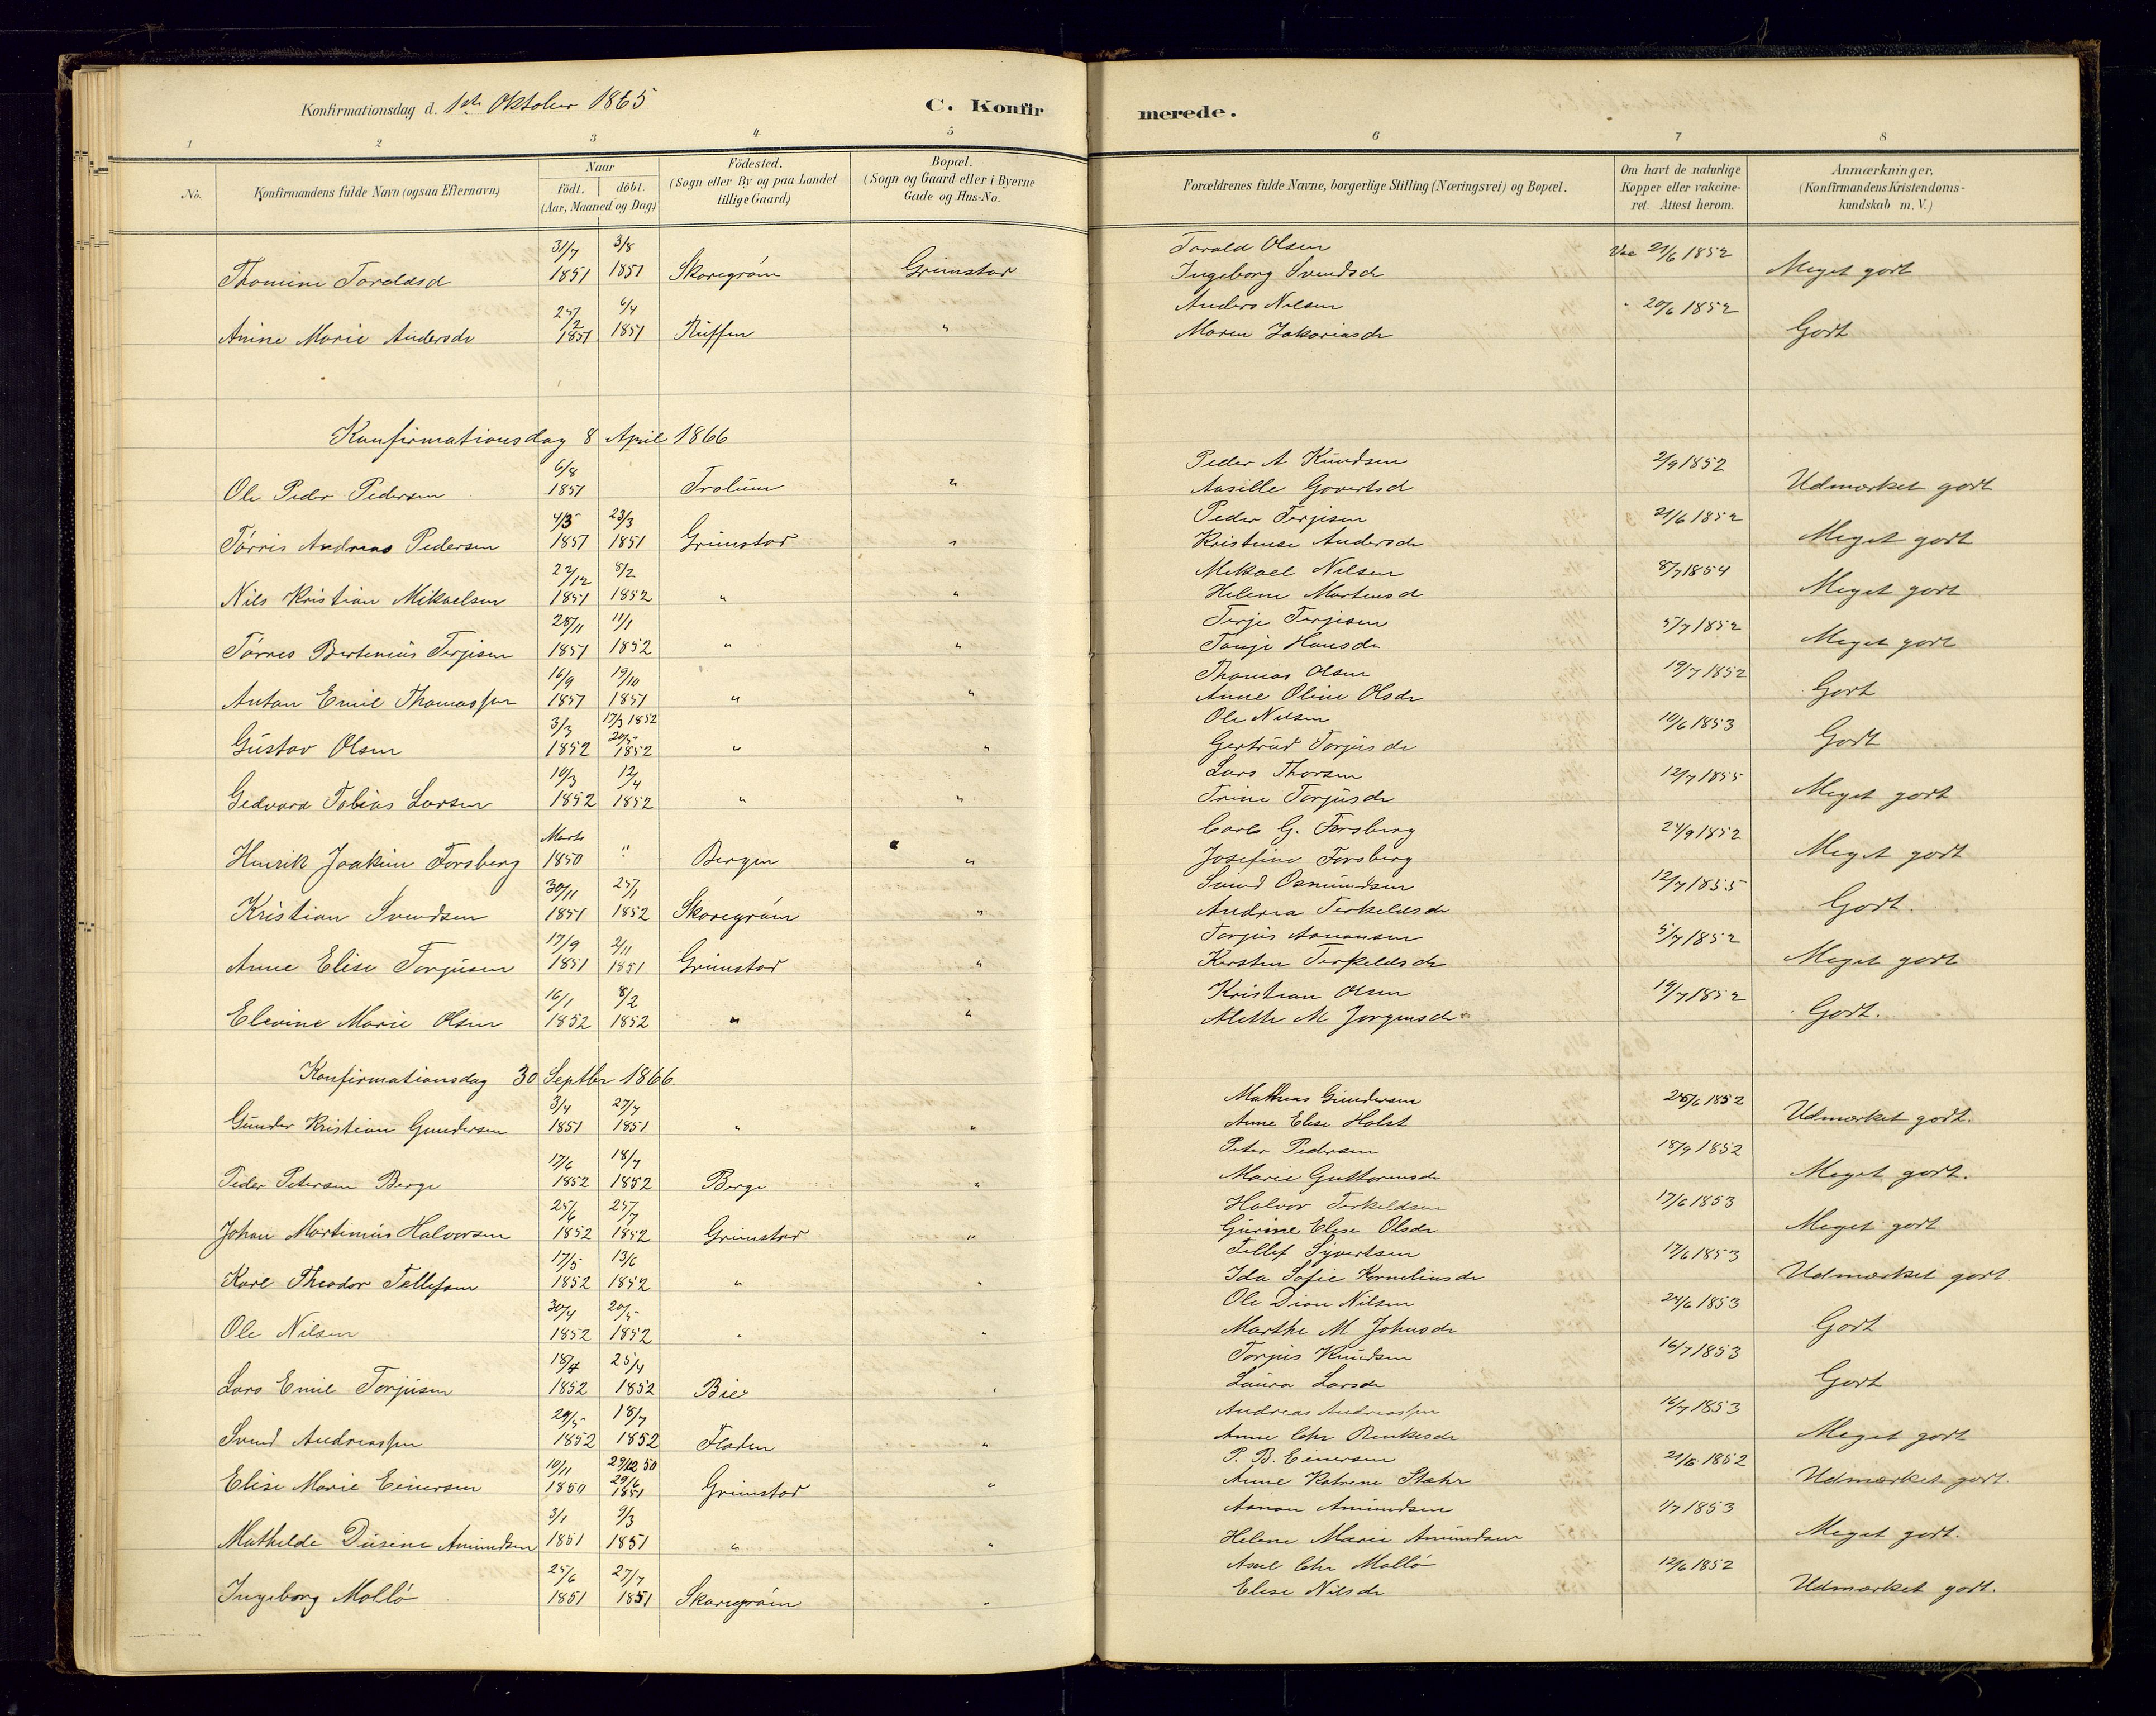 Konfirmationsdag d. 1ste Oktober 1865
C. Konfir merede.
1 2 3 4 5 6 7 8
No. Konfirmandens fulde Navn (ogsaa Efternavn) Naar födt. döbt. (Aar, Maaned og Dag) Födested. (Sogn eller By og paa Landet tillige Gaard) Bopæl. (Sogn og Gaard eller i Byerne Gade og Hus-No. Forældrenes fulde Navne, borgerlige Stilling (Næringsvei) og Bopæl. Om havt de naturlige Kopper eller vakcineret. Attest herom. Anmærkninger. (Konfirmandens Kristendomskundskab m. V.)
31/7 3/8 Torald Olsen Vac 21/6 1852
Thomine Toraldsd 1851 1851 Skaregröm Grimstad Ingeborg Svendsd Meget godt
25/2 6/4 Anders Nilsen " 20/6 1852
Anine Marie Andersdr 1851 1851 " Maren Zakariasdr Godt
Konfirmationsdag 8 April 1866
6/8 Peder A Knudsen 2/9 1852
Ole Peder Pedersen 1851 Frolün " Aasille Govertsd Udmærket godt
4/3 23/3 Peder Terjesen 21/6 1852
Törris Andreas Pedersen 1851 1851 Grimstad " Kristense Andersdr Meget godt
27/12 8/2 Mikael Nilsen 8/7 1854
Nils Kristian Mikaelsen 1851 1852 " " Helene Martensd Meget godt
28/11 11/1 Terje Terjesen 5/7 1852
Törres Bertinius Terjesen 1851 1852 " " Tonje Hansdr Meget godt
16/9 19/10 Thomas Olsen 19/7 1852
Anton Emil Thomassen 1851 1851 " " Anne Oline Olsdr Godt
3/3 17/3 1852 Ole Nilsen 10/6 1853
Gustav Olsen 1852 20/5 1852 " " Gertrud Torjusdr Godt
10/3 12/4 Lars Thorsen 12/7 1855
Gedvard Tobias Larsen 1852 1852 " " Trine Torjusdr Meget godt
Marts Carl G. Forsberg 24/9 1852
Henrik Joakim Forsberg 1850 " Bergen " Josefine Forsberg Meget godt
30/11 25/1 Svend Osmundsen 12/7 1855
Kristian Svendsen 1851 1852 Skaregröm " Andrea Terkeldsdr Godt.
17/9 2/11 Torjus Aanonsen 5/7 1852
Anne Elise Torjusen 1851 1851 Grimstad " Kirsten Terkeldsdr Meget godt
16/1 8/2 Kristian Olsen 19/7 1852
Elevine Marie Olsen 1852 1852 " " Aleth M Jorgensdr Godt.
Konfirmationsdag 30 Septbr 1866
3/4 27/7 Mathias Gundersen 28/6 1852
Gunder Kristian Gundersen 1851 1851 " " Anne Elise Holst Udmærket godt.
17/6 18/7 Peter Pedersen 18/9 1852
Peder Petersen Berge 1852 1852 Berge " Marie Guttormsdr Meget godt.
25/6 25/7 Halvor Terkeldsen 17/6 1853
Johan Martinius Halvorsen 1852 1852 Grimstad " Gurine Elise Olsdr Meget godt
17/5 13/6 Tellef Syvertsen 17/6 1853
Karl Theodor Tellefsen 1852 1852 " " Ida Sofie Korneliusdr Udmærket godt.
30/4 20/5 Ole Dion Nilsen 24/6 1853
Ole Nilsen 1852 1852 " " Marthe M Johnsdr Godt
18/4 25/4 Torjus Knudsen 16/7 1853
Lars Emil Torjusen 1852 1852 Bie " Laura Larsdr Godt
29/5 18/7 Andreas Andreassen 16/7 1853
Svend Andreassen 1852 1852 Fladen " Anne Chr Meget godt
10/11 29/12 50 P. B. Einersen 21/6 1852
Elise Marie Einersen 1850 29/6 1851 Grimstad " Anne Katrine Stæhr Udmærket godt.
3/1 9/3 Aanon Amundsen 1/7 1853
Mathilde Dusine Amundsen 1851 1851 " " Helene Marie Amundsen Meget godt.
25/6 27/7 Axel Chr Mollö 12/6 1852
Ingeborg Mollö 1851 1851 Skaregröm " Elise Nilsdr Udmærket godt.